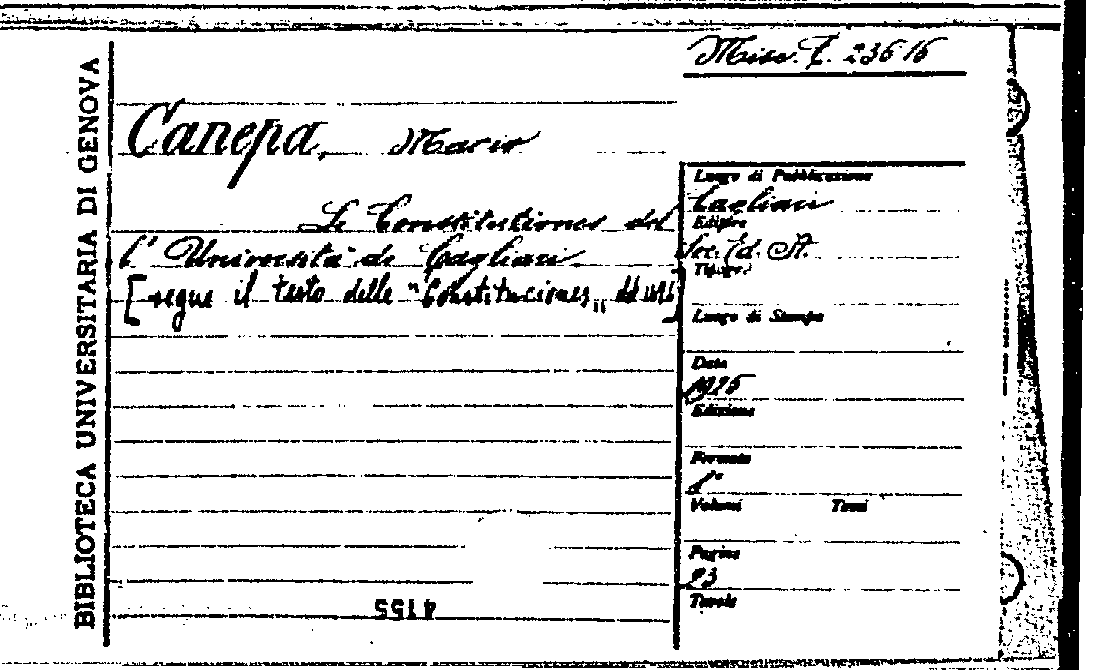 BIBLIOTECA UNIVERSITARIA DI GENOVA
Misc. Z. 23616
Canepa, Mario
Le Constitutiones del
l'Università di Cagliari
[segue il testo delle "Constituciones"
Luogo di Pubblicazione
Cagliari
Editore
Soc. Ed. It.
Tipogr.
Luogo di Stampa
Data
1925
Edizione
Formato
Volumi Tomi
Pagine
93
Tavole
4155